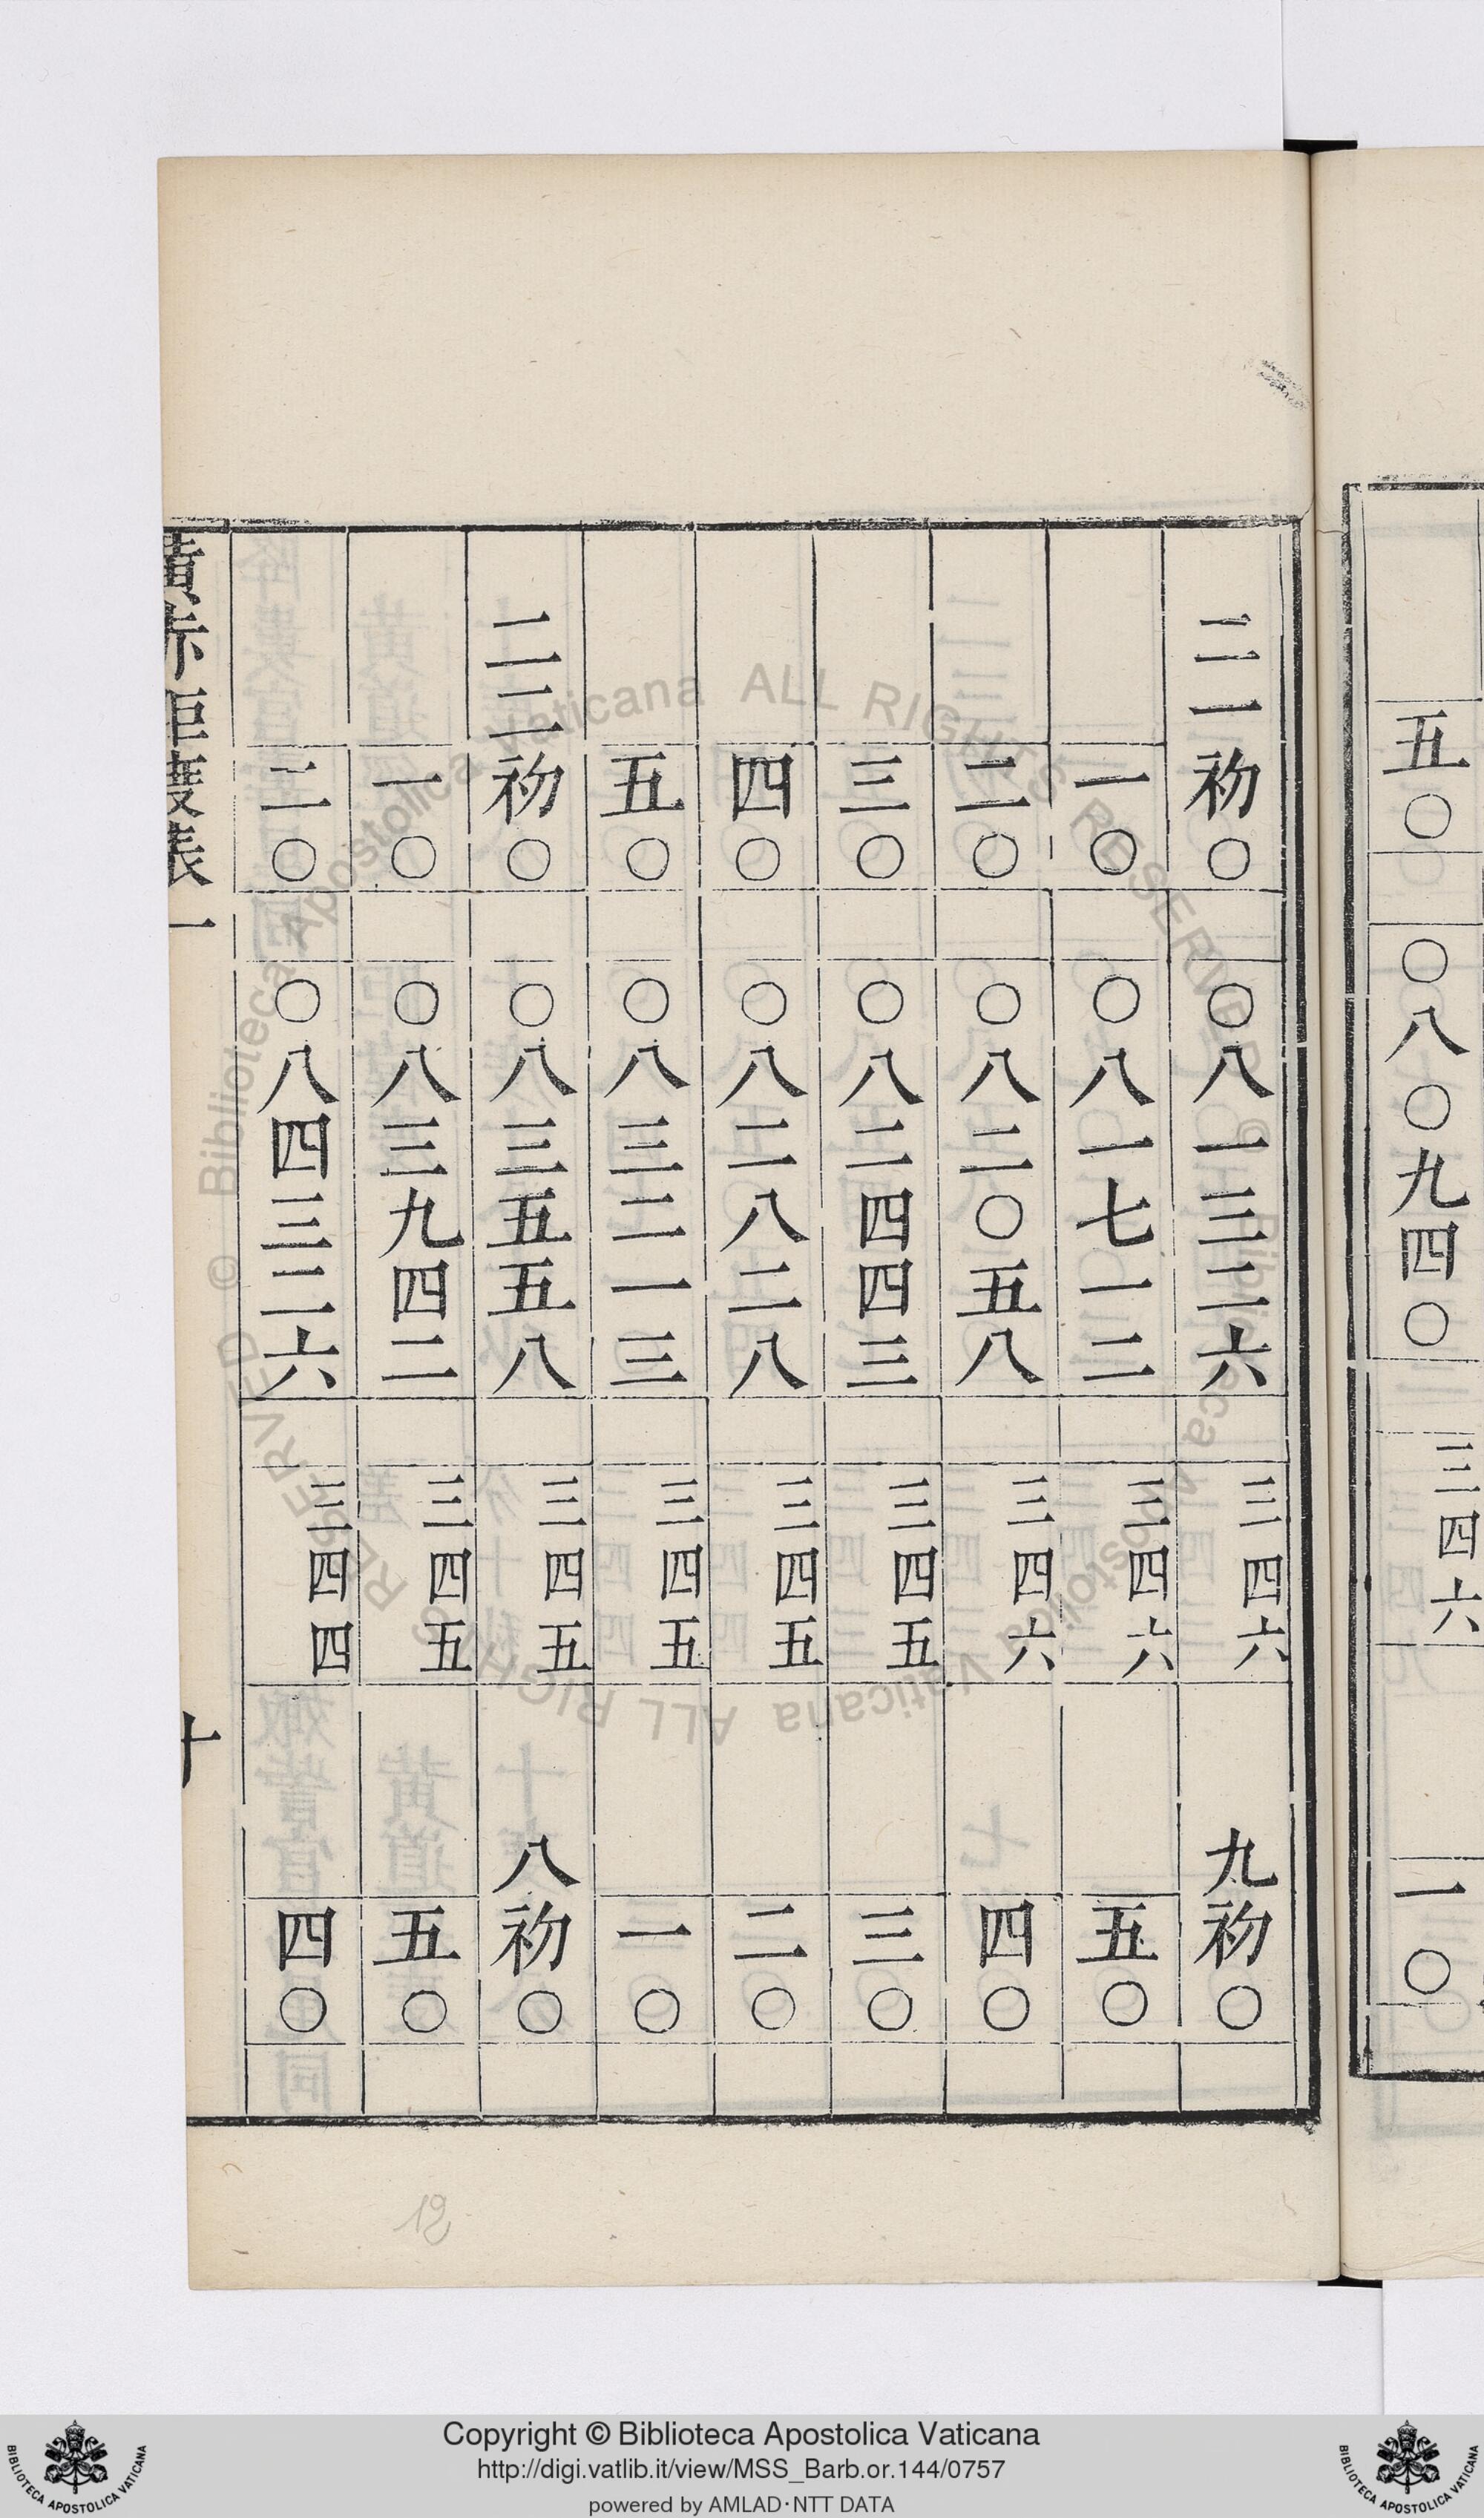 五〇 〇八〇九四〇 三四六 一〇
二一 初〇 〇八一三二六 三四六 九 初〇
一〇 〇八一七一二 三四六 五〇
二〇 〇八二〇五八 三四六 四〇
三〇 〇八二四四三 三四五 三〇
四〇 〇八二八二八 三四五 二〇
五〇 〇八三二一三 三四五 一〇
二二 初〇 〇八三五五八 三四五 八 初〇
一〇 〇八三九四二 三四五 五〇
二〇 〇八四三二六 三四四 四〇
黃赤距度表 一 十
12
Copyright © Biblioteca Apostolica Vaticana
http://digi.vatlib.it/view/MSS_Barb.or.144/0757
powered by AMLAD·NTT DATA
BIBLIOTECA APOSTOLICA VATICANA
BIBLIOTECA APOSTOLICA VATICANA
© Biblioteca Apostolica Vaticana ALL RIGHTS RESERVED
© Biblioteca Apostolica Vaticana ALL RIGHTS RESERVED